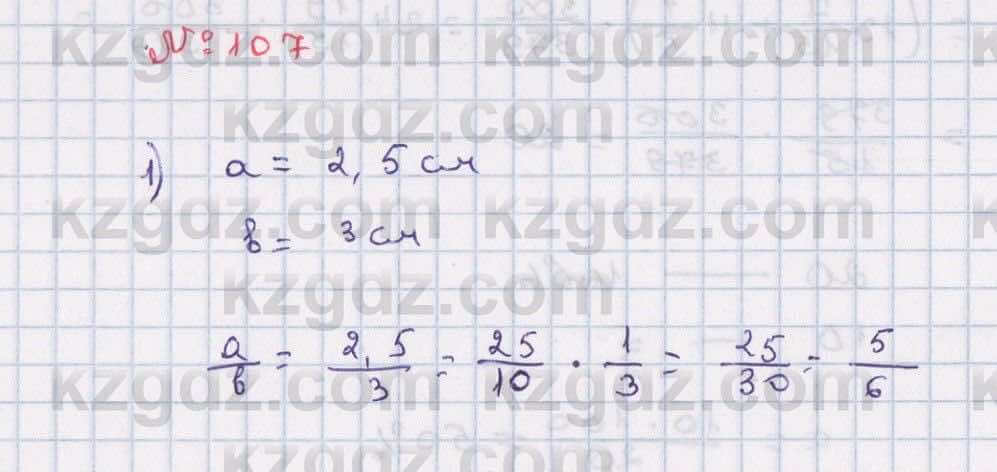 № 107
kzgdz.com kzgdz.com
kzgdz.com
1) a = 2,5 см
kzgdz.com kzgdz.com
b = 3 см
kzgdz.com
a/b = 2,5/3 = 25/10 · 1/3 = 25/30 = 5/6
kzgdz.com kzgdz.com
kzgdz.com